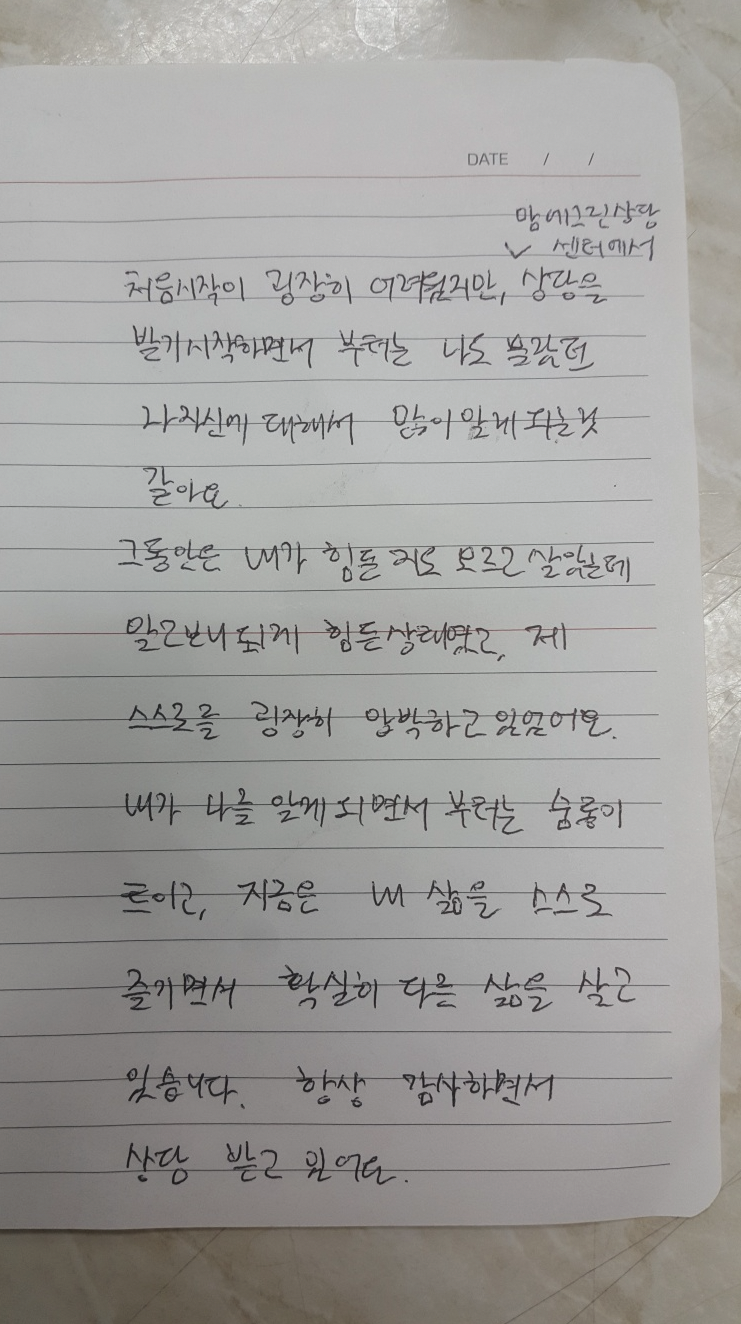 DATE / /
맘에그린상담
✓ 센터에서
처음시작이 굉장히 어려웠지만, 상담을
받기시작하면서 부터는 나도 몰랐던
나자신에 대해서 많이알게되는것
같아요.
그동안은 내가 힘든 지도 모르고살았는데
알고보니되게 힘든상태였고, 제
스스로를 굉장히 압박하고있었어요.
내가 나를 알게되면서 부터는 숨통이
트이고, 지금은 내 삶을 스스로
즐기면서 확실히 다른 삶을 살고
있습니다. 항상 감사하면서
상담 받고 있어요.